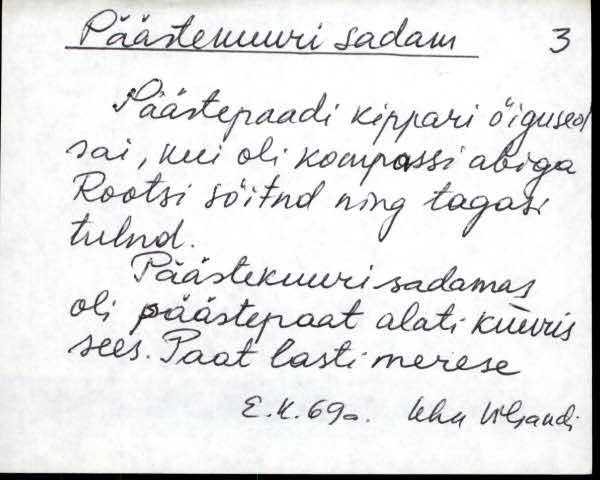 Päästekuuri sadam 3
Päästepaadi kippari õigused
sai, kui oli kompassi abiga
Rootsi sõitnd ning tagasi
tulnd.
Päästekuuri sadamas
oli päästepaat alati küüris
sees. Paat lasti merese
E.K. 69a.